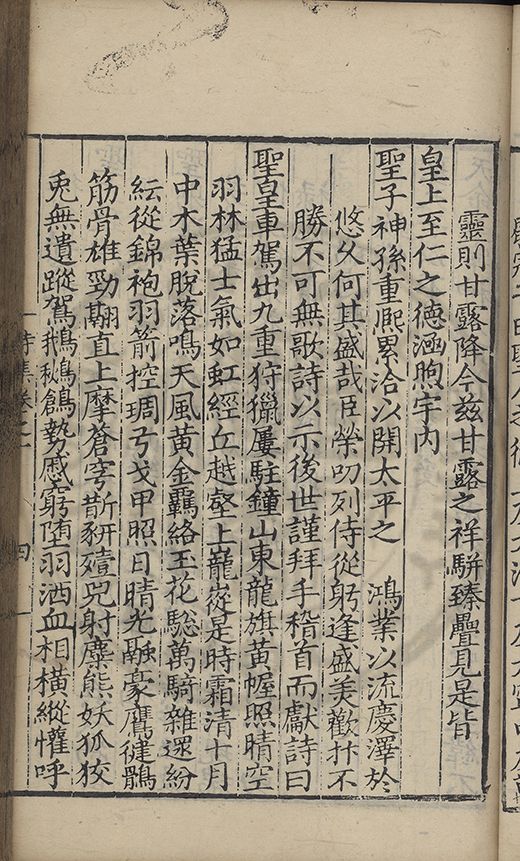 靈則甘露降今茲甘露之祥駢臻疊見是皆
皇上至仁之德涵煦宇内
聖子神孫重熈累洽以開太平之 鴻業以流慶澤於
悠久何其盛哉臣榮叨列侍從躬逢盛美歡忭不
勝不可無歌詩以示後世謹拜手稽首而獻詩曰
聖皇車駕出九重狩獵屢駐鐘山東龍旗黄幄照晴空
羽林猛士氣如虹經丘越壑上巃嵸是時霜清十月
中木葉脫落鳴天風黄金羈絡玉花驄萬騎雜遝紛
紜從錦袍羽箭控琱弓戈甲照日晴光融豪鷹健鶻
筋骨雄勁翮直上摩蒼穹斮豜殪兕射麋熊妖狐狡
兎無遺蹤駕鵝鶖鶬勢慼窮堕羽洒血相橫縱懽呼
詩集卷之一
四